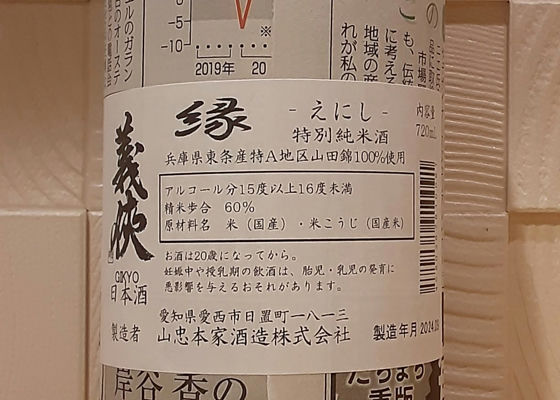 -5
-10
2019年
20
※
ルのガラン
日のオーステ
も、伝統
に考える
地域の商
れが私の
市場
義侠
GIKYO
日本酒
縁
- えにし -
特別純米酒
内容量
720ml
兵庫県東条産特A地区山田錦100%使用
アルコール分15度以上16度未満
精米歩合 60%
原材料名 米(国産)・米こうじ(国産米)
お酒は20歳になってから。
妊娠中や授乳期の飲酒は、胎児・乳児の発育に
悪影響を与えるおそれがあります。
愛知県愛西市日置町一八一三
製造者 山忠本家酒造株式会社 製造年月 2024
谷
香の